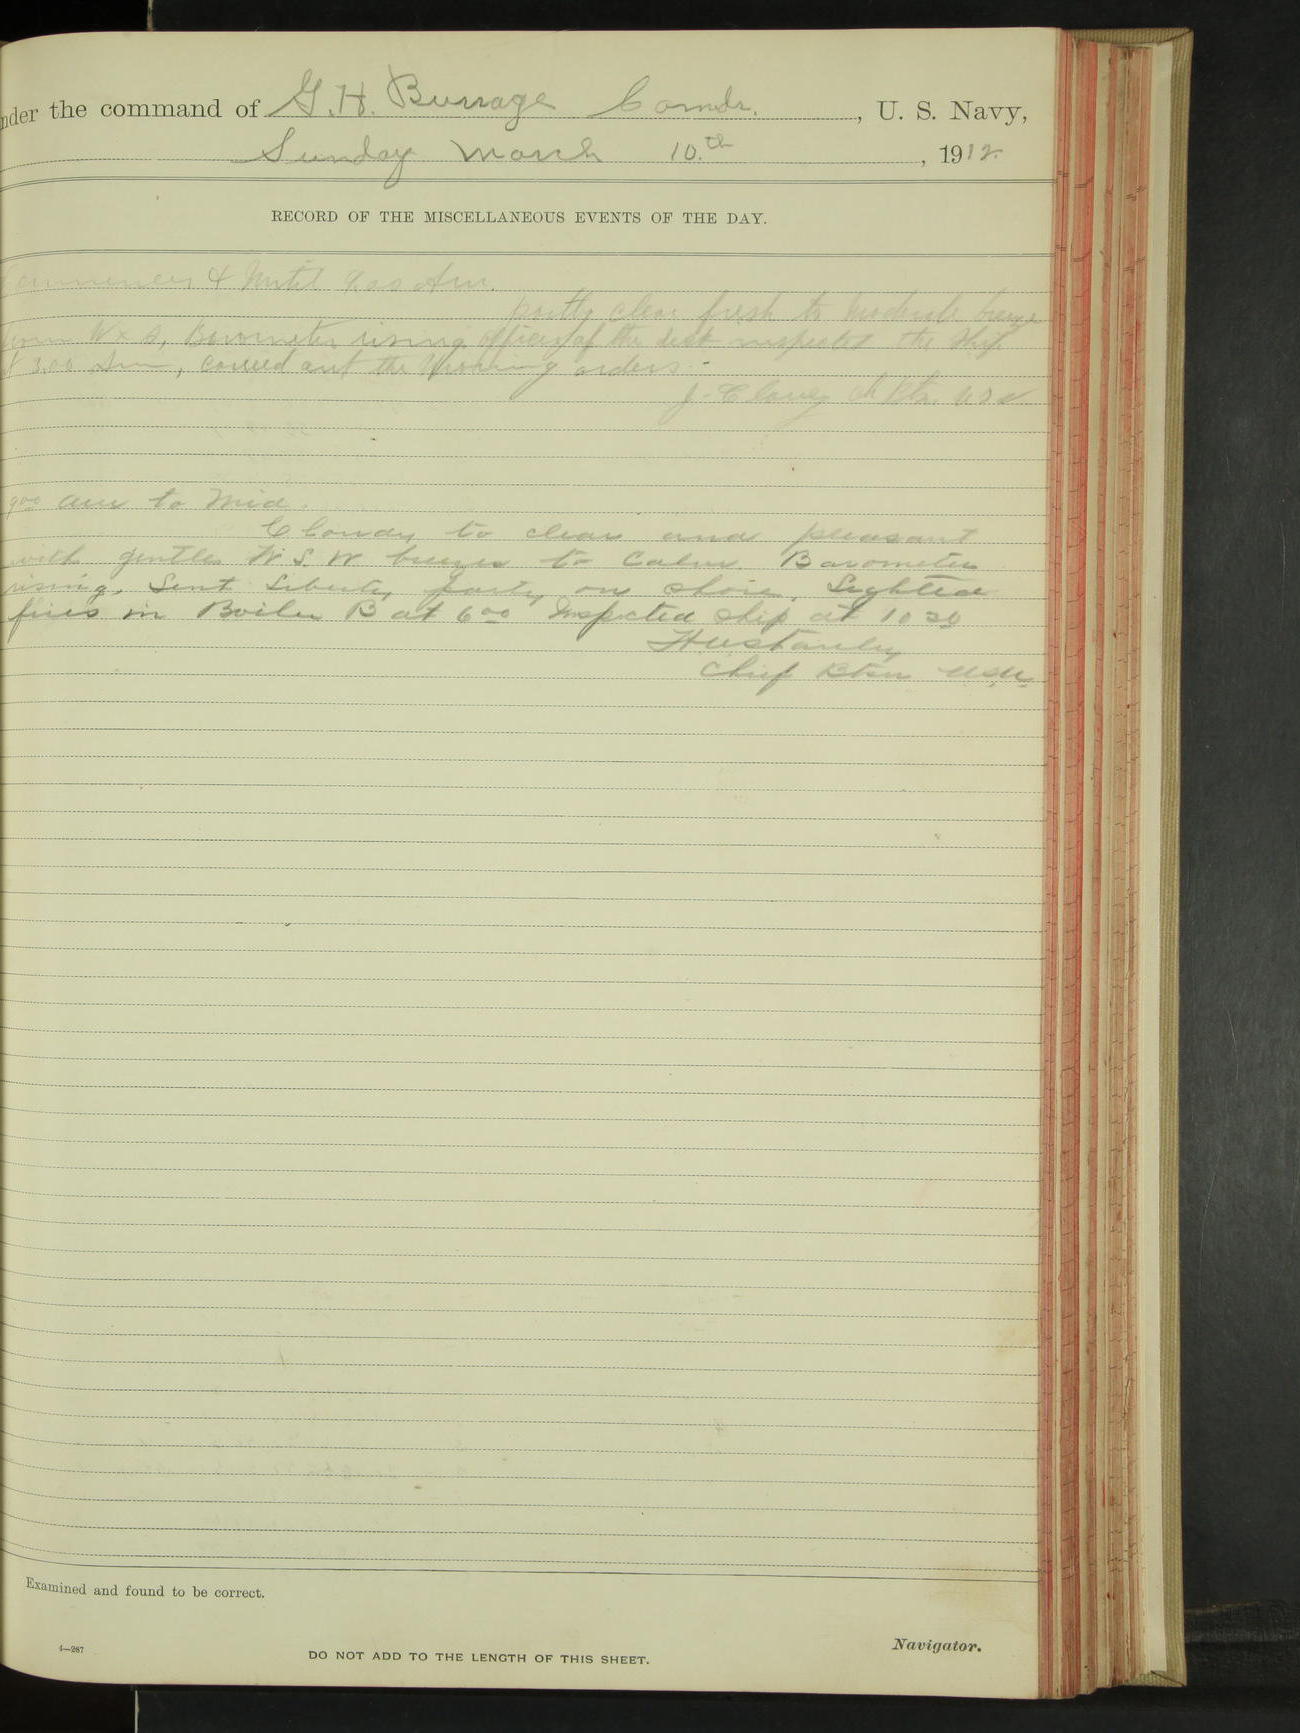 under the command of G. H. Burrage Comdr., U. S. Navy,
Sunday March 10.th, 1912.
RECORD OF THE MISCELLANEOUS EVENTS OF THE DAY.
Commences & Until
partly clear fresh to moderate breeze
from W x S, Barometer rising officer of the deck inspected the Ship
at 3.00 Am, carried out the Morning orders.
J. Clancy Ch Btn. USN
9 00 am to Mid.
Cloudy to clear and pleasant
with gentle W S W breeze to Calm. Barometer
rising. Sent Liberty party on shore. Lighted
fires in Boiler B at 6 00 Inspected Ship at 10 30
Chief Btsn USN.
Examined and found to be correct.
4—267
DO NOT ADD TO THE LENGTH OF THIS SHEET.
Navigator.